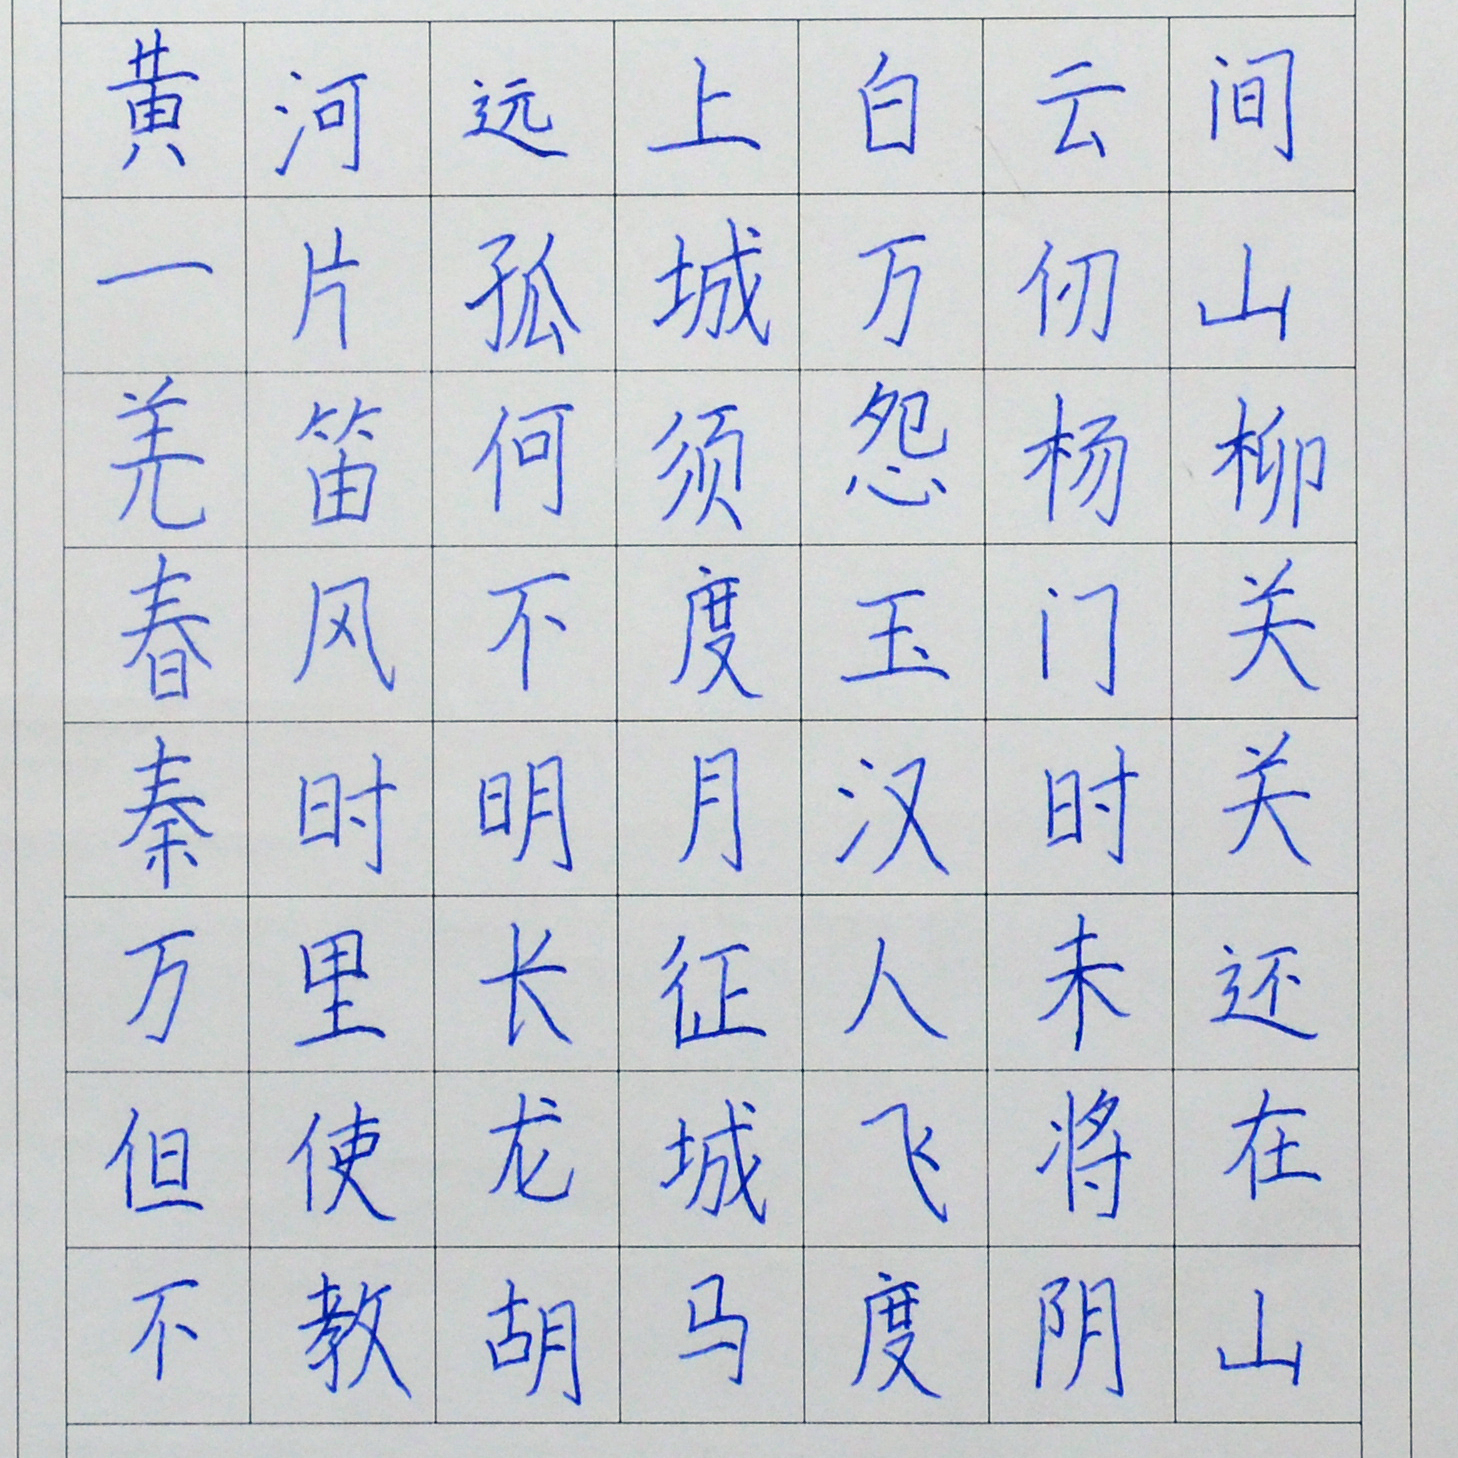 黄河远上白云间
一片孤城万仞山
羌笛何须怨杨柳
春风不度玉门关
秦时明月汉时关
万里长征人未还
但使龙城飞将在
不教胡马度阴山